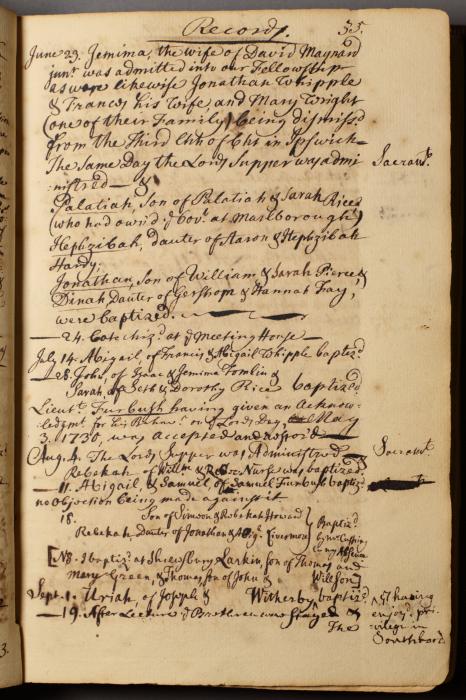 Records. 35.
June 23. Jemima, the wife of David Maynard
junr. was admitted into our Fellowship
as were likewise Jonathan Whipple
& Frances his Wife, and Mary Wright
(one of their Family) being dismiss'd
from the Third Chh of Cht in Ipswich—
The Same Day the Lords Supper was admi Sacramt.
:nistred — &
Palatiah, Son of Palatiah & Sarah Rice
(who had own'd ye Covt. at Marlborough)
Hephzibah, Dauter of Aaron & Hephzibah
Hardy:
Jonathan, Son of William & Sarah Pierce, &
Dinah, Dauter of Gershom & Hannah Fay,
were baptized.
— 24. Catechiz'd at ye Meeting House —
July 14. Abigail, of Francis & Abigail Whipple baptiz'd
— 28. John, of Isaac & Jemima Tomlin &
Sarah, of Seth & Dorothy Rice baptiz'd
Lieut. Furbush having given an Acknow-
ledgmt for his Behavr. on ye Lords Day May
3. 1730, was accepted and restor'd
Aug. 4. The Lords Supper was Administred — Sacramt.
Rebekah of Willm & Rebec: Nurse was baptized.
— 11. Abigail, & Samuel, of Samuel Furbush baptiz'd
no objection being made against it
18. Son of Simeon & Rebekah Howard
Rebekah Dauter of Jonathan & Abig. Livermore
Baptiz'd
by Mr. Cushing
in my Absence
[NB. I baptiz'd at Shrewsbury Larkin, son of Thomas and
Mary Green, & Thomas, son of John & Willson]
Sept. 1. Uriah, of Joseph & Witherby baptiz'd
having
— 19. After Lecture ye Brethren were Stayed &
enjoy'd pri-
vilege in
The
Southboro.
3.